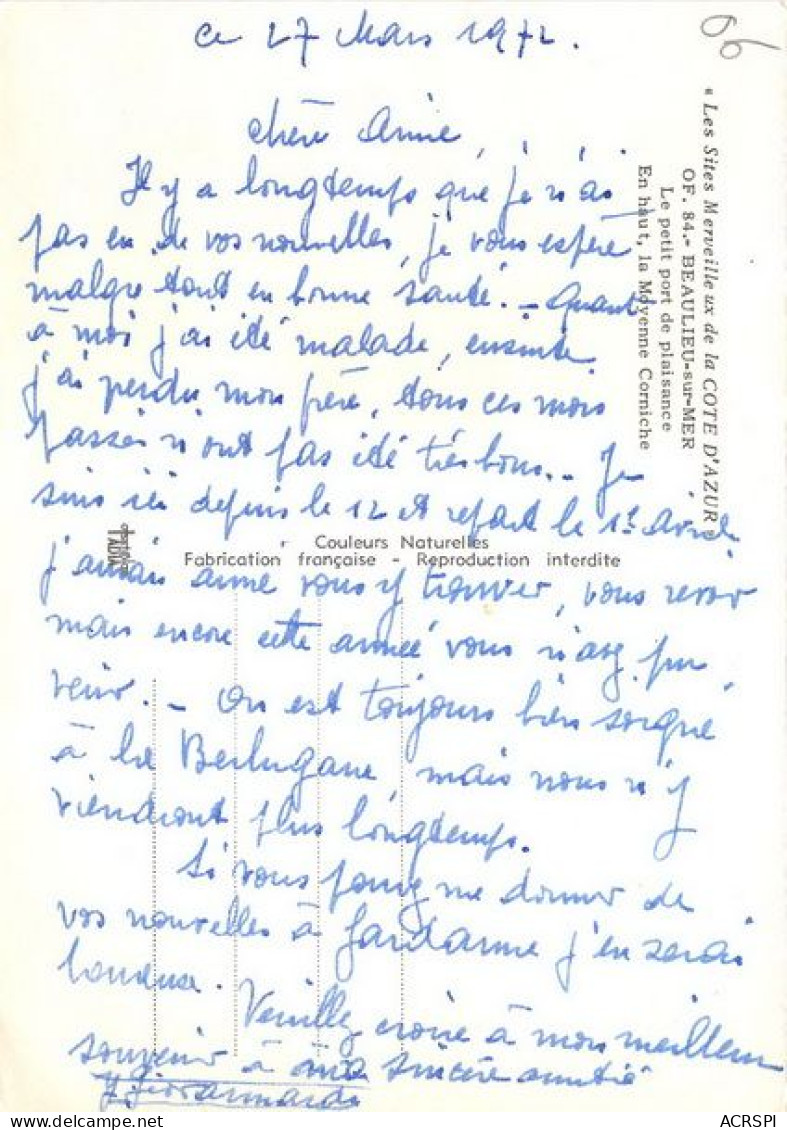 ce 27 Mars 1972.
chère Amie,
Il y a longtemps que je n'ai
pas eu de vos nouvelles, je vous espère
malgré tout en bonne santé. - Quant
à moi j'ai été malade, ensuite
j'ai perdu mon frère, tous ces mois
passés n'ont pas été très bons. - Je
suis ici depuis le 12 et repart le 1er Avril
j'aurais aimé vous y trouver, vous revoir
mais encore cette année vous n'avez pu
venir. - On est toujours bien soigné
à la Berlugane, mais nous n'y
viendront plus longtemps.
Si vous pouvez me donner de
vos nouvelles à Gardanne j'en serai
heureuse. Veuillez croire à mon meilleur
souvenir à ma sincère amitié
« Les Sites Merveilleux de la COTE D'AZUR »
OF. 84.- BEAULIEU-sur-MER
Le petit port de plaisance
En haut, la Moyenne Corniche
Couleurs Naturelles
Fabrication française - Reproduction interdite
ACRSPI